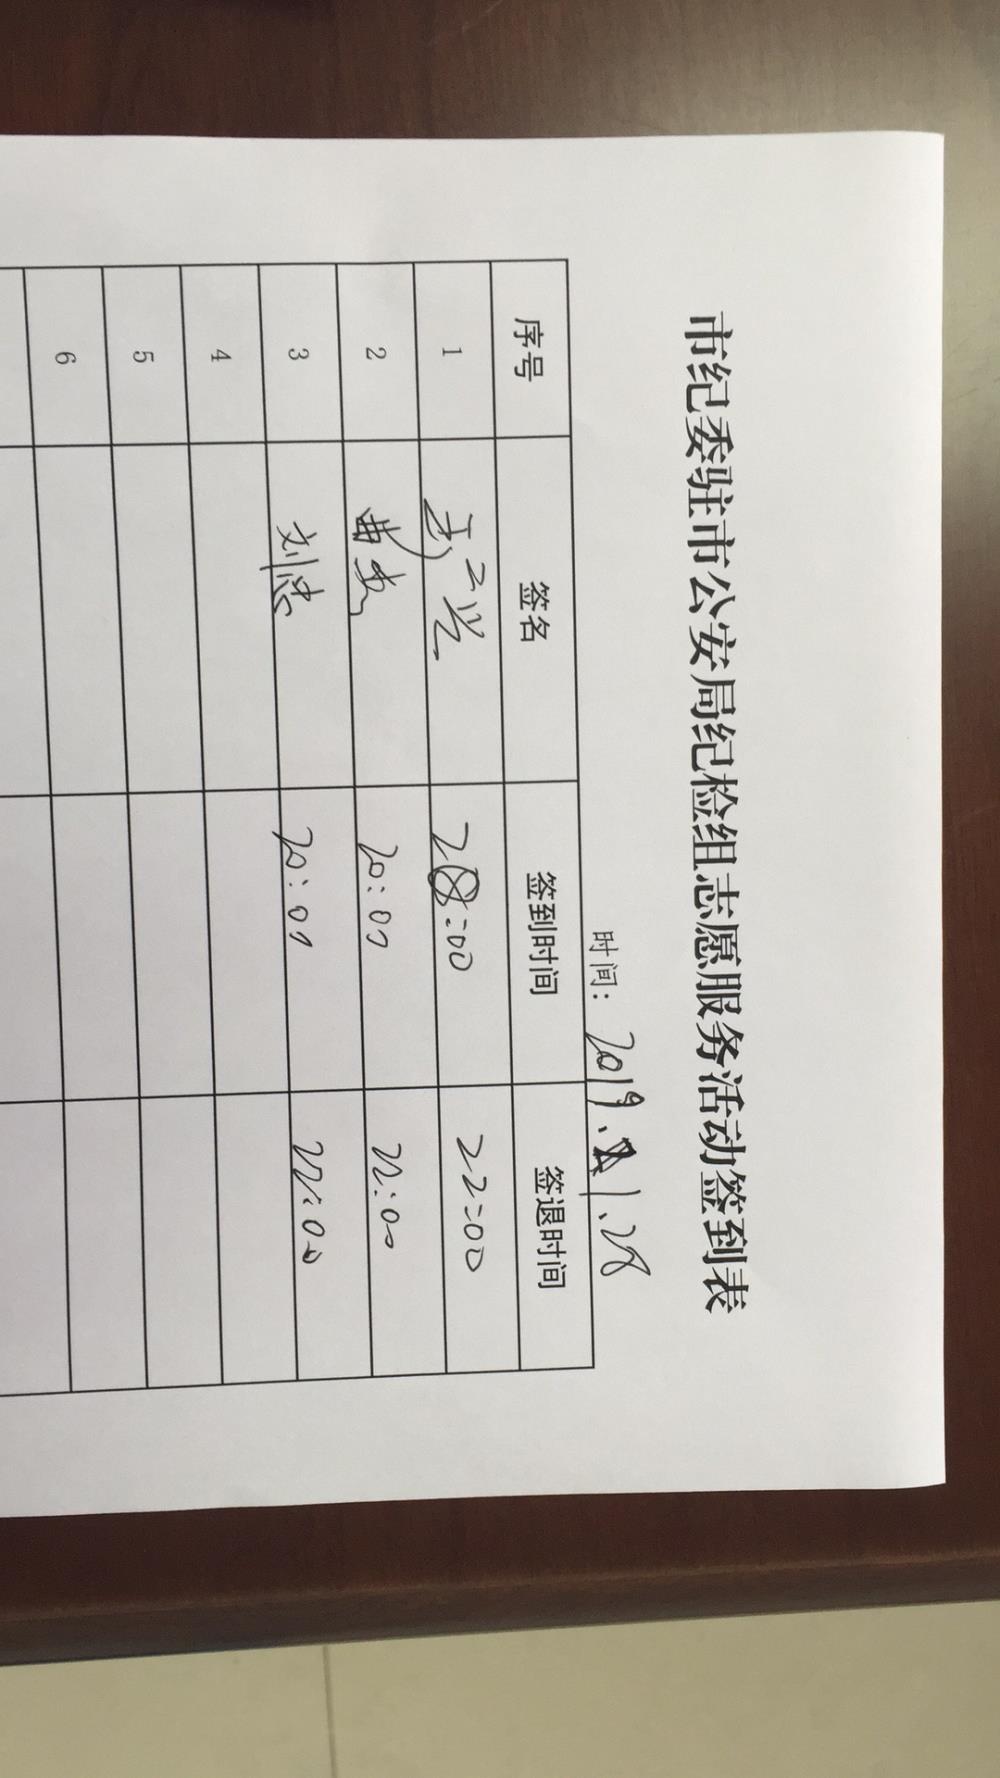 市纪委驻市公安局纪检组志愿服务活动签到表
时间：2019.1.28
序号 签名 签到时间 签退时间
1 20:00 22:00
2 20:00 22:00
3 刘忠 20:00 22:00
4
5
6